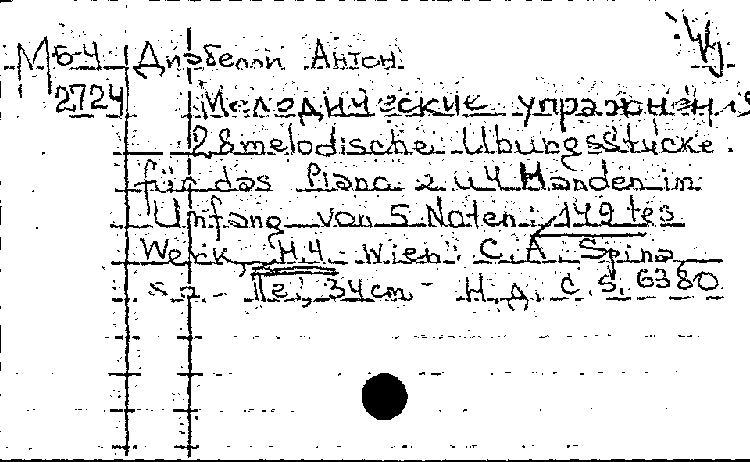 М 6-4 Диабелли Антон.
2724 Мелодические упражнения
28 melodische Übungsstücke.
für das Piano zu 4 Händen in
Umfang von 5 Noten: 149 tes
Werk, H.4 - Wien: C. A. Spina,
s.a. - 34 cm - Н.д. C. S. 6380